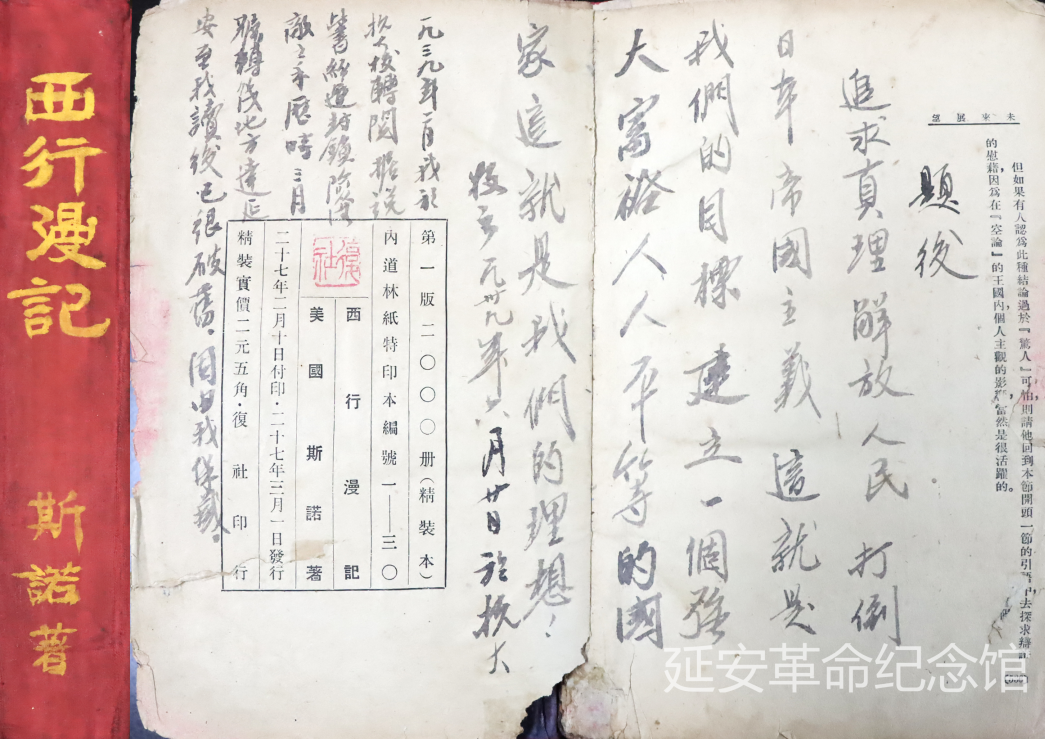 西行漫記
斯諾著
未來展望
但如果有人認爲此種結論過於『驚人』可怕，則請他回到本節開頭一節的引語中去探求
的慰藉，因爲在『空論』的王國內個人主觀的影響，當然是很活躍的。
題後
追求真理解放人民打倒
日本帝國主義這就是
我們的目標建立一個強
大富裕人人平等的國
家這就是我們的理想！
牧云一九卅九年六月廿日於抗大
一九三九年二月我於
抗大校轉閱據說
此書經過封鎖陷落
敵之手歷時三月
輾轉後地方達延
安至我讀後已很破舊。因由我保藏。
第一版二〇〇〇册（精裝本）
內道林紙特印本編號一——三〇
復社
西行漫記
美國斯諾著
二十七年二月十日付印·二十七年三月一日發行
精裝實價二元五角·復社印行
延安革命纪念馆